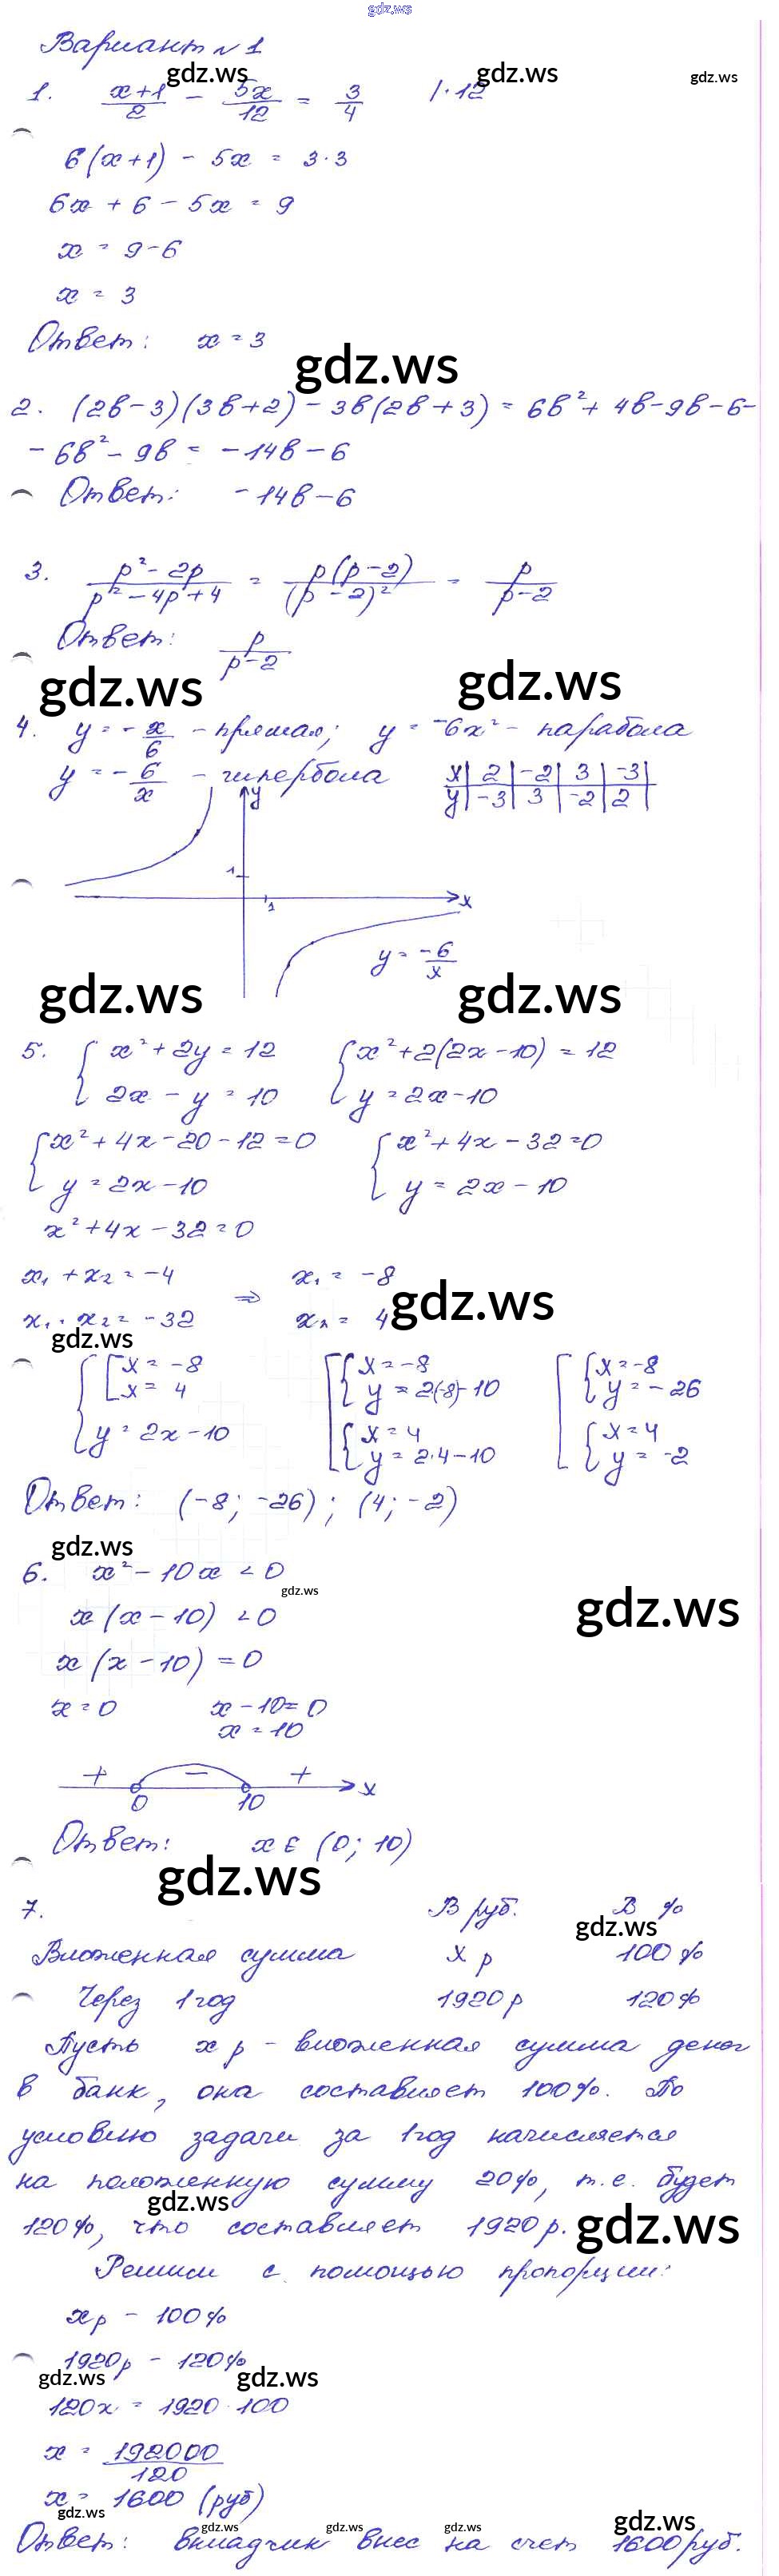 gdz.ws
Вариант №1
gdz.ws gdz.ws gdz.ws
1. (x+1)/2 - 5x/12 = 3/4 |·12
6(x+1) - 5x = 3·3
6x + 6 - 5x = 9
x = 9-6
x = 3
Ответ: x = 3
gdz.ws
2. (2b-3)(3b+2) - 3b(2b+3) = 6b²+ 4b-9b-6-
- 6b² - 9b = -14b - 6
Ответ: -14b-6
3. (p²-2p)/(p²-4p+4) = p(p-2)/(p-2)² = p/(p-2)
Ответ: p/(p-2)
gdz.ws gdz.ws
4. y = -x/6 - прямая; y = -6x² - парабола
y = -6/x - гипербола x| 2 | -2 | 3 | -3 |
y| -3 | 3 | -2 | 2 |
y
1
1 x
y = -6/x
gdz.ws gdz.ws
5. { x²+2y = 12 { x²+2(2x-10) = 12
2x - y = 10 y = 2x-10
{ x²+4x-20-12=0 { x²+4x-32=0
y = 2x-10 y = 2x-10
x²+4x-32=0
x₁ + x₂ = -4 ⇒ x₁ = -8
x₁ · x₂ = -32 x₂ = 4
gdz.ws gdz.ws
{ [ x = -8 [ { x=-8 [ { x=-8
x = 4 y = 2(-8)-10 y = -26
y = 2x-10 { x=4 { x=4
y = 2·4-10 y = -2
Ответ: (-8; -26); (4; -2)
gdz.ws
6. x²-10x < 0
gdz.ws
x(x-10) < 0 gdz.ws
x(x-10) = 0
x = 0 x-10=0
x = 10
+ - + x
0 10
Ответ: x ∈ (0; 10)
gdz.ws
7. В руб. В %
gdz.ws
Вложенная сумма x р 100%
Через 1 год 1920 р 120%
Пусть x р - вложенная сумма денег
в банк, она составляет 100%. По
условию задачи за 1 год начисляется
на положенную сумму 20%, т.е. будет
gdz.ws
120%, что составляет 1920 р. gdz.ws
Решим с помощью пропорции:
x р - 100%
1920р - 120%
gdz.ws gdz.ws
120x = 1920·100
x = 192000/120
x = 1600 (руб)
gdz.ws gdz.ws gdz.ws gdz.ws gdz.ws
Ответ: вкладчик внес на счет 1600 руб.